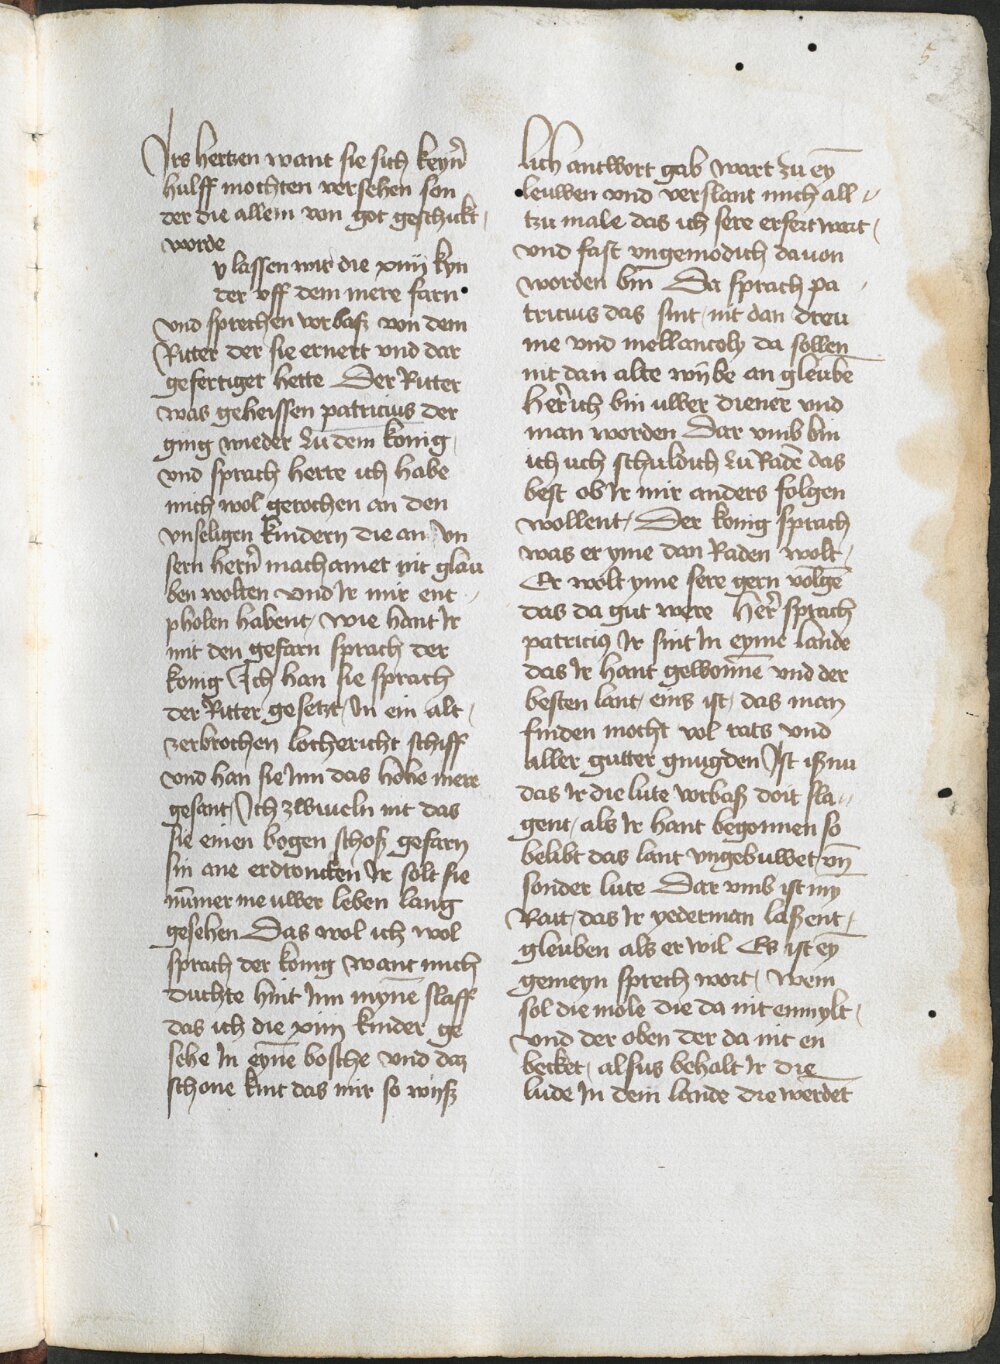 5
Irs hertzen want sie sich keyner̄
hulff mochten versehen son
der die allein von got geschickt
worde
y lassen wir die xiiij kyn
der vff dem mere farn
vnd sprechen vorbaß von dem
Ritter der sie ernert vnd dar
gefertiget hette Der Ritter
was geheissen patricius der
ging wieder zu dem konig
vnd sprach herre ich habe
mich wol gerochen an den
vnseligen kindern die an vn
sern hern̄ machamet nit glau
ben wolten vnd Ir mir ent
pholen habent / wie hant Ir
mit den gefarn sprach der
konig Ich han sie sprach
der Ritter gesetzt / In ein alt
zerbrochen lochericht schiff
vnd han sie Inn das hohe mere
gesant / Ich zwiueln nit das
sie einen bogen schoß gefarn
sin ane erdroncken Ir solt sie
nūmer me uwer leben lang
gesehen Das wol ich wol
sprach der konig want mich
duchte hint Inn mynē slaff
das ich die xiiij kinder ge
sehe In eynē bosche vnd daz
schone kint das mir so wiß
lich antwort gab wart zu eȳ
leuwen vnd verslant mich all
tzu male das ich sere erfert wart /
vnd fast vngemodich dauon
worden bin Da sprach pa
tricius das sint / nit dan dreu
me vnd mellancoly da sollen
nit dan alte wybe an gleubē
Her̄ ich bin uwer diener vnd
man worden Dar vmb bin
ich uch schuldich zu Radē das
best ob Ir mir anders folgen
wollent / Der konig sprach
was er yme dan Raden wolt /
Er wolt yme sere gern volgē
das da gut were Her̄ sprach
patricius Ir sint In eyme lande
das Ir hant gewonnē vnd der
besten lant / eins ist / das man
finden mocht vol rats vnd
aller gutter gnugden Ist iß nu
das Ir die lute vorbaß doit sla
gent / als Ir hant begonnen so
belibt das lant vngebuwet vn̄
sonder lute Dar vmb ist my
Rait / das Ir yederman laßent /
gleuben als er wil Es ist eȳ
gemeyn sprech wort / Wem
sol die mole die da nit enmylt /
vnd der oben der da nit en
becket / alsus behalt Ir die
lude In dem lande die werdēt